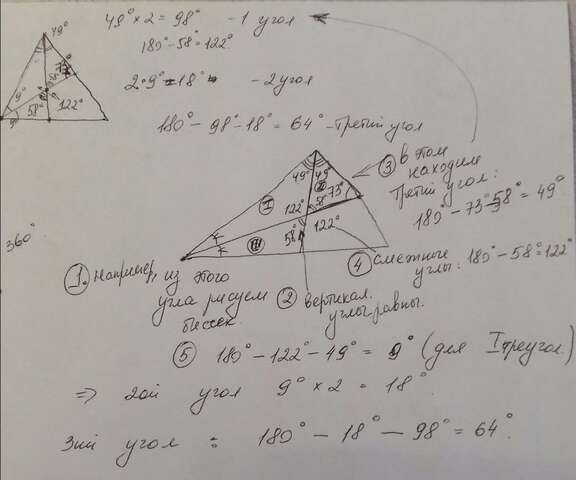 49° × 2 = 98° - 1 угол
180° - 58° = 122°
2 · 9° = 18° - 2 угол
180° - 98° - 18° = 64° - третий угол
49°
9°
9°
58°
122°
③ в этом
находим
третий угол:
180° - 73° - 58° = 49°
49° 49°
I
II
73°
122°
58°
122°
58°
III
360°
④ смежные
углы: 180° - 58° = 122°
① Например, из этого
угла рисуем
биссек.
② вертикал.
углы равны.
⑤ 180° - 122° - 49° = 9° (для I треугол.)
=> 2ой угол 9° × 2 = 18°
3ий угол = 180° - 18° - 98° = 64°.